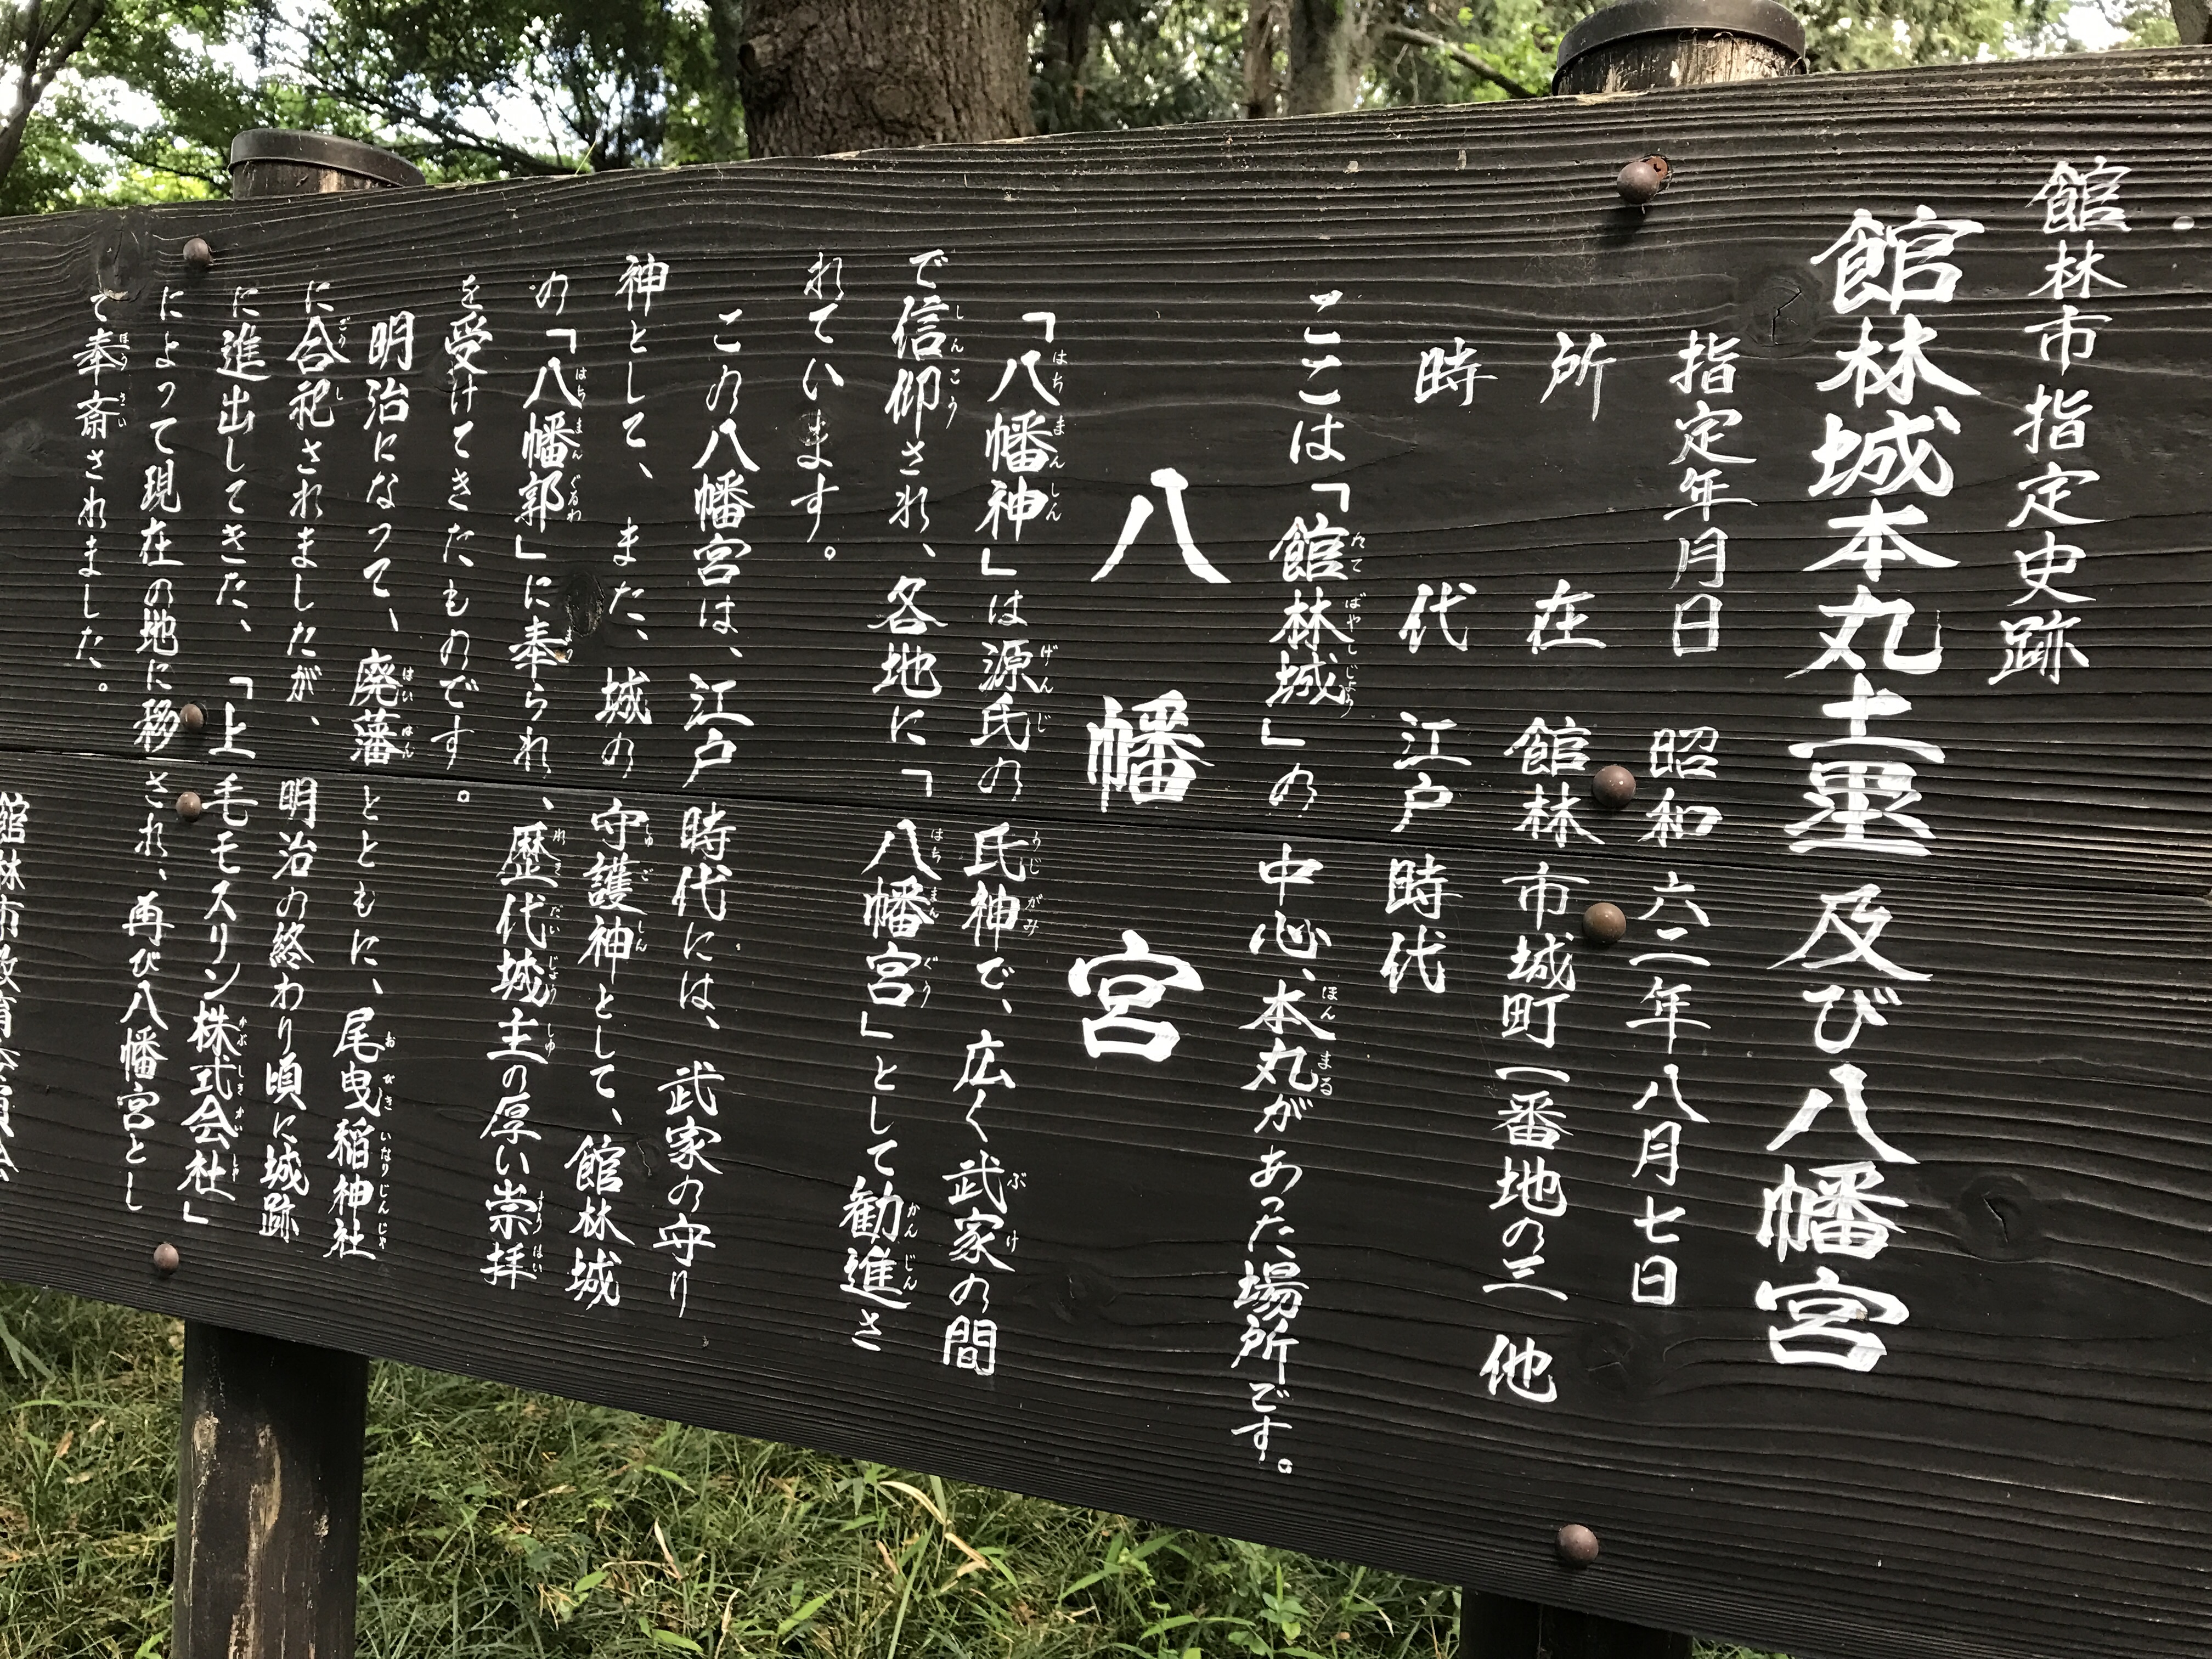 館林市指定史跡
館林城本丸土塁及び八幡宮
指定年月日　昭和六二年八月七日
所在　館林市城町一番地の三　他
時代　江戸時代
ここは「館林城」の中心、本丸があった場所です。
八幡宮
「八幡神」は源氏の氏神で、広く武家の間
で信仰され、各地に「八幡宮」として勧進さ
れています。
この八幡宮は、江戸時代には、武家の守り
神として、また、城の守護神として、館林城
の「八幡郭」に奉られ、歴代城主の厚い崇拝
を受けてきたものです。
明治になって、廃藩とともに、尾曳稲神社
に合祀されましたが、明治の終わり頃に城跡
に進出してきた、「上毛モスリン株式会社」
によって現在の地に移され、再び八幡宮とし
て奉斎されました。
館林市教育委員会